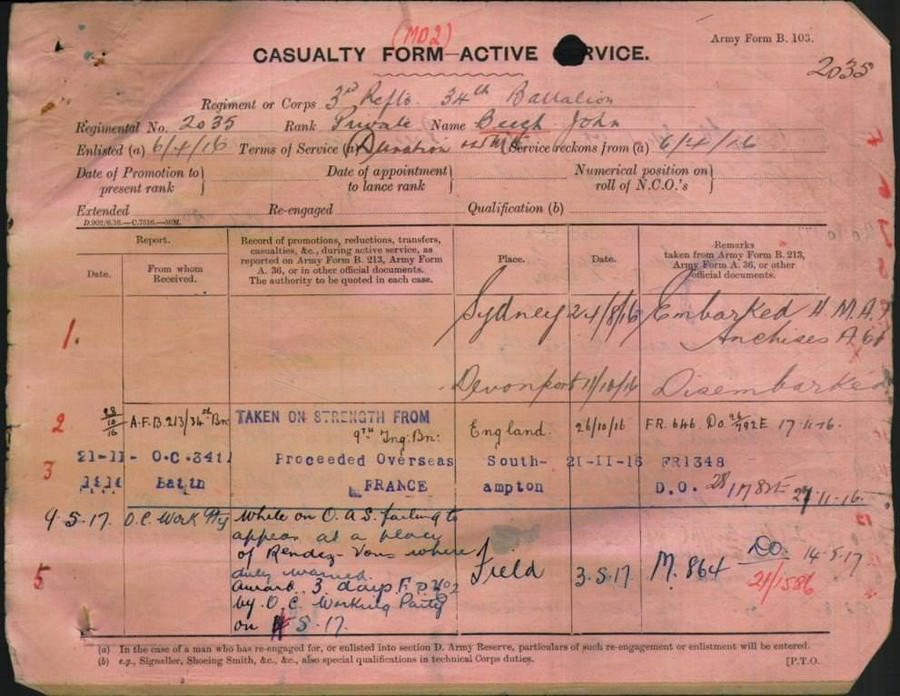 (MD2)
Army Form B. 103.
CASUALTY FORM—ACTIVE RVICE.
2035
Regiment or Corps 3rd Refts. 34th Battalion
Regimental No. 2035 Rank Private Name Beech John
Enlisted (a) 6/4/16 Terms of Service (a) Duration Service reckons from (a) 6/4/16
Date of Promotion to present rank } Date of appointment to lance rank } Numerical position on roll of N.C.O.'s }
Extended Re-engaged Qualification (b)
Report.
Date.
From whom Received.
Record of promotions, reductions, transfers,
casualties, &c., during active service, as
reported on Army Form B. 213, Army Form
A. 36, or in other official documents.
The authority to be quoted in each case.
Place.
Date.
Remarks
taken from Army Form B. 213,
Army Form A. 36, or other
official documents.
1. Sydney 24/8/16 Embarked H.M.A.T
Anchises A 68
Devonport 11/10/16 Disembarked
2 28/10/16 A.F.B. 213/34th Bn TAKEN ON STRENGTH FROM
9th Tng: Bn: England. 26/10/16 FR. 646. Do. 17-11-16.
3 21-11- O.C. 34th Proceeded Overseas South- 21-11-16 FR1348
1916 Battn FRANCE ampton D.O. 27-11-16.
9.5.17. O.C. Work Pty While on O.A.S. failing to
appear at a place
of Rendez-Vous where
duly warned. Field 3.5.17. M. 864 Do. 14.5.17
5 award. 3 days F.P. No 2 21/1586
by O.C. Working Party
on 4.5.17.
(a) In the case of a man who has re-engaged for, or enlisted into section D. Army Reserve, particulars of such re-engagement or enlistment will be entered.
(b) e.g., Signaller, Shoeing Smith, &c., &c., also special qualifications in technical Corps duties. [P.T.O.